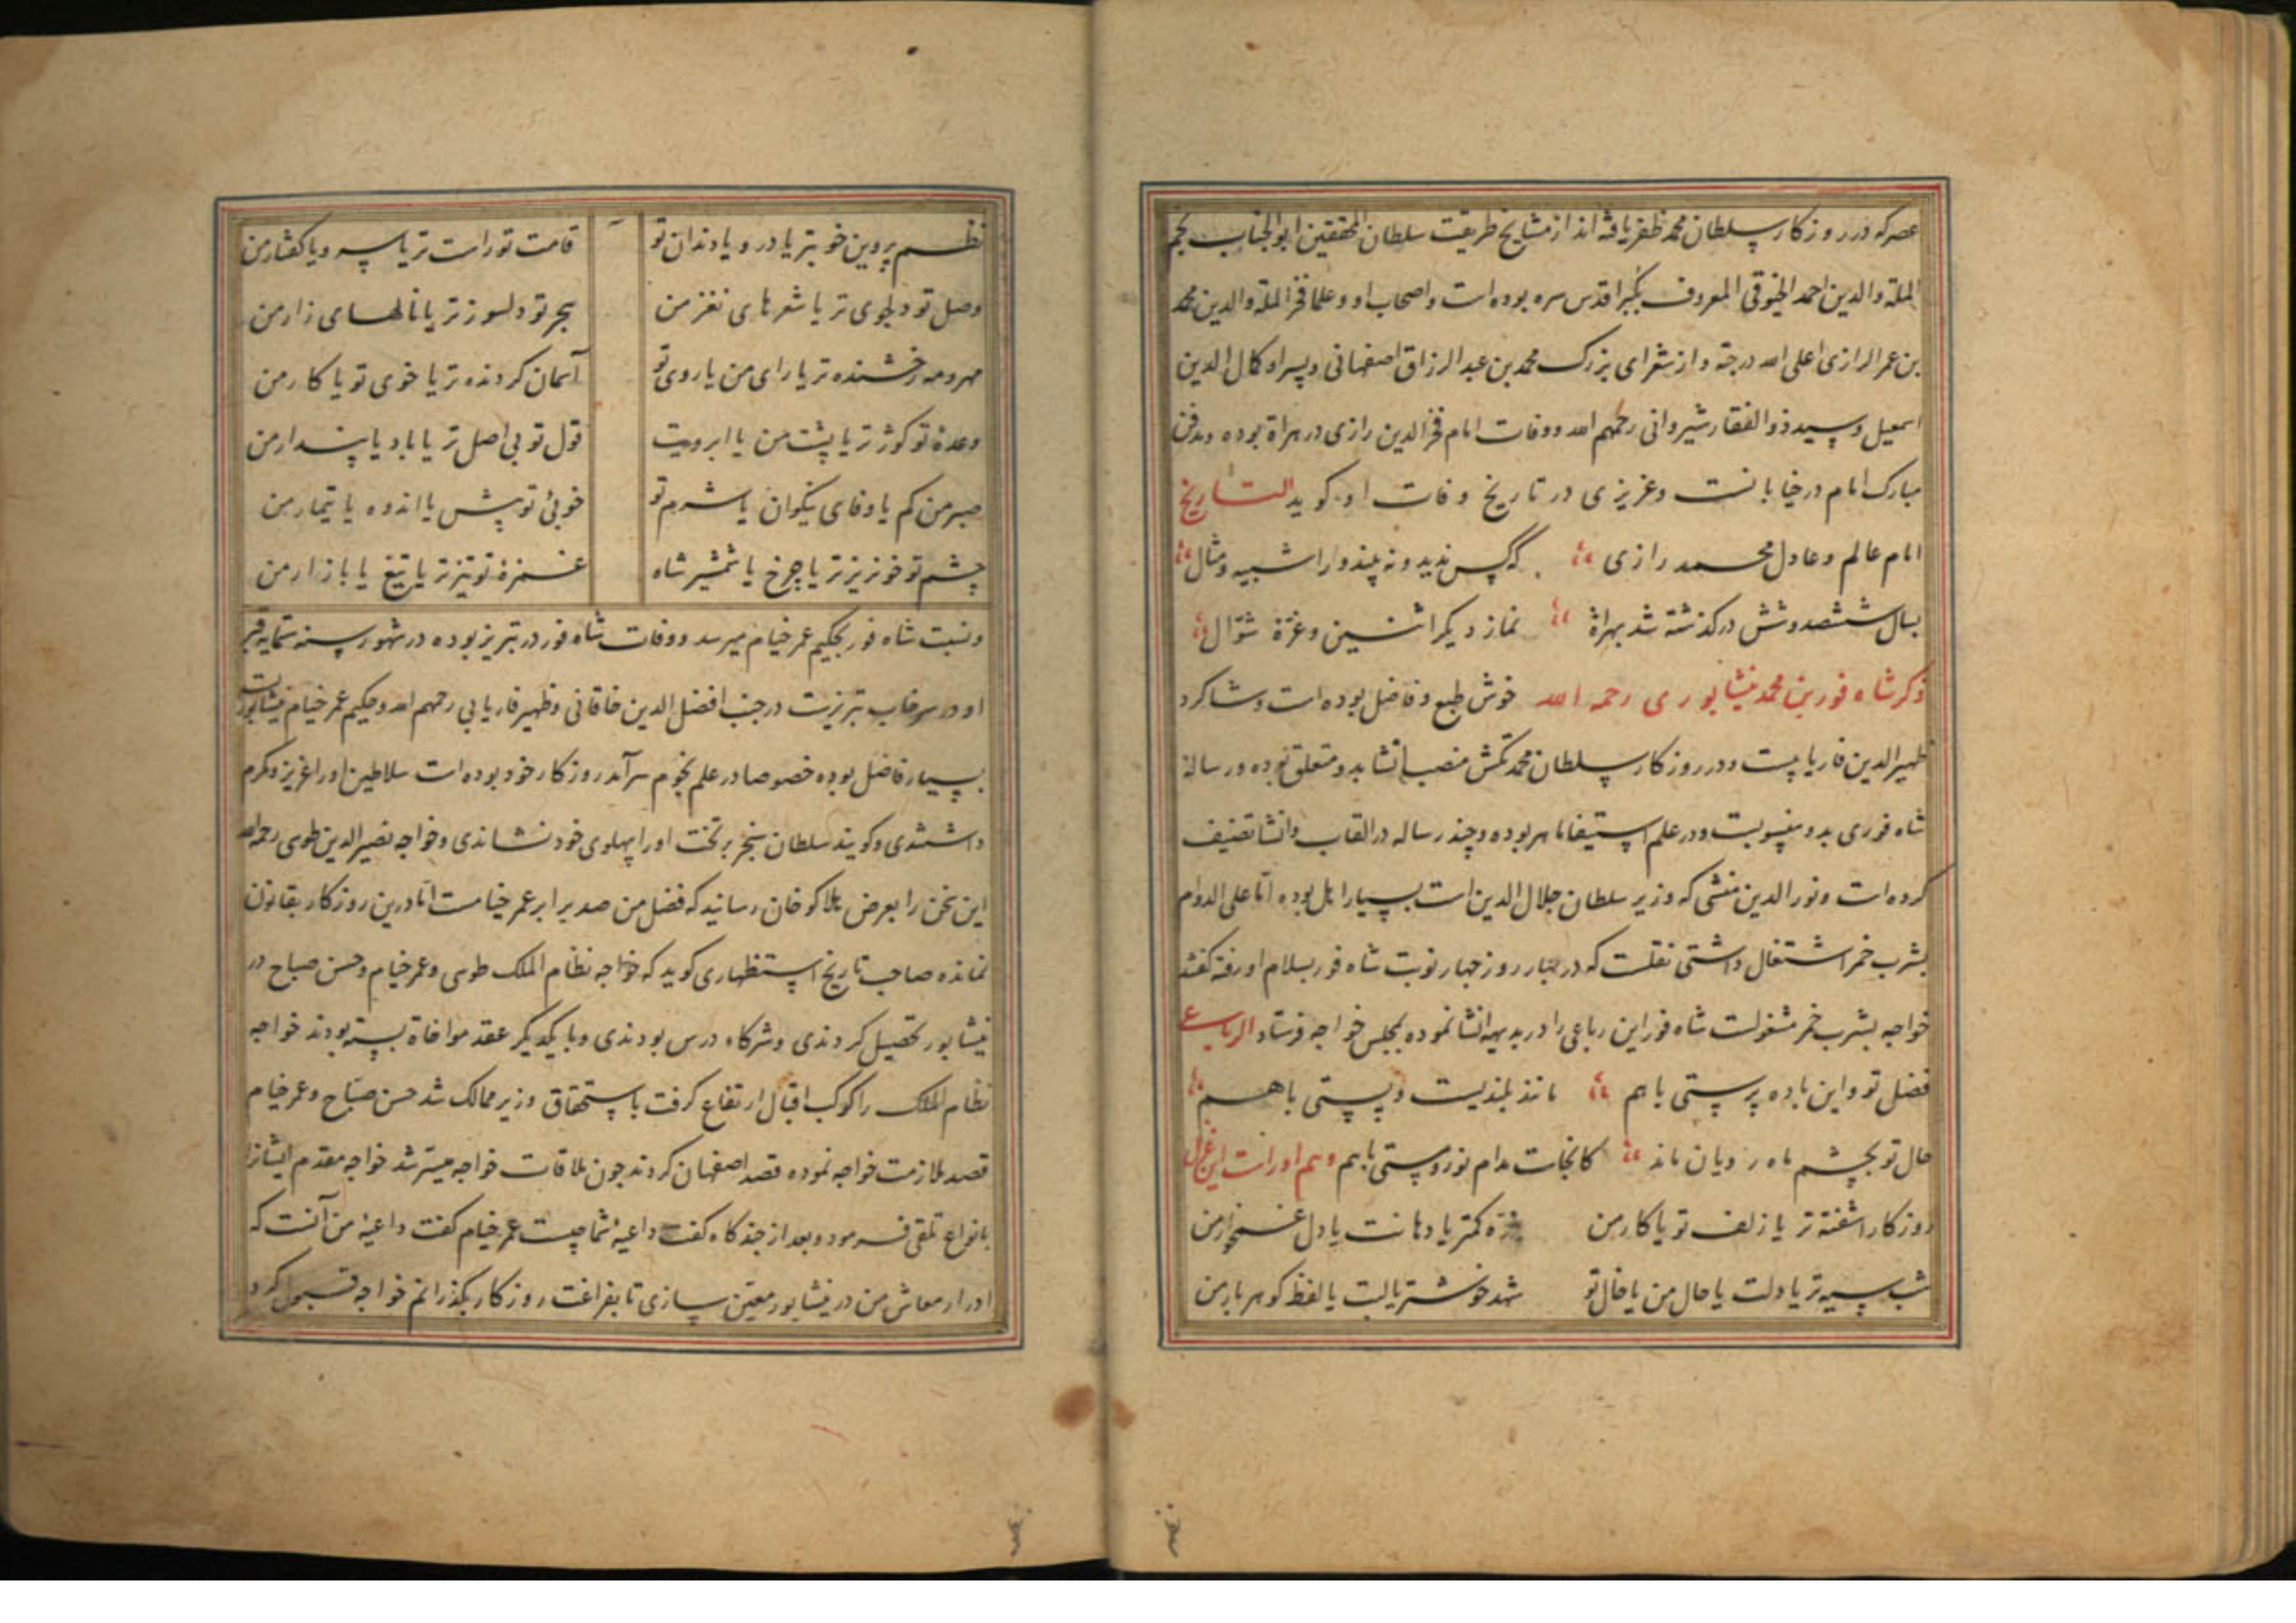 عصر که در روزکار سلطان محمد ظفر یافته اند از مشایخ طریقت سلطان المحققین ابو الجناب نجم
الملة و الدین احمد الخیوقی المعروف بکبرا قدس سره بوده است و اصحاب او و علما فخر الملة و الدین محمد
بن عمر الرازی اعلی الله درجته و از شعرای بزرک محمد بن عبد الرزاق اصفهانی و پسر او کمال الدین
اسمعیل و سید ذو الفقار شیروانی رحمهم الله و وفات امام فخر الدین رازی در هراة بوده و مدفن
مبارک امام در خیابانست و عزیزی در تاریخ وفات او کوید التاریخ
امام عالم و عادل محمد رازی که کس ندید و نه بیند ورا شبیه و مثال
بسال ششصد و شش درکذشته شد بهراة نماز دیکر اثنین و غرة شوّال
ذکر شاه فور بن محمد نیشابوری رحمه الله خوش طبع و فاضل بوده است و شاکرد
ظهیر الدین فاریابیست و در روزکار سلطان محمد تکش منصب انشا بدو متعلق بوده و رسالهٔ
شاه فوری بدو منسوبست و در علم استیفا ماهر بوده و چند رساله در القاب و انشا تصنیف
کرده است و نور الدین منشی که وزیر سلطان جلال الدین است بسیار اهل بوده امّا علی الدوام
بشرب خمر اشتغال داشتی نقلست که در چهار روز چهار نوبت شاه فور بسلام او رفته کفتند
خواجه بشرب خمر مشغولست شاه فور این رباعی را در بدیهه انشا نموده بمجلس خواجه فرستاد الرباعی
فضل تو و این باده پرستی با هم مانند بلندیست و پستی با هم
حال تو بچشم ماه رویان ماند کانجاست مدام نور و مستی با هم و هم اوراست این غزل
روزکار اشفته تر یا زلف تو یا کار من ذره کمتر یا دهانت یا دل غمخوار من
شب سیه تر یا دلت یا حال من یا خال تو شهد خوشتر یا لبت یا لفظ کوهر بار من
نظم پروین خوبتر یا در و یا دندان تو قامت تو راست تر یا سرو یا کفتار من
وصل تو دلجوی تر یا شعرهای نغز من هجر تو دلسوزتر یا نالهای زار من
مهر و مه رخشنده تر یا رای من یا روی تو آسمان کردنده تر یا خوی تو یا کار من
وعدهٔ تو کوژتر یا پشت من یا ابرویت قول تو بی اصل تر یا باد یا پندار من
صبر من کم یا وفای نیکوان یا شرم تو خوبیٔ تو بیش یا اندوه یا تیمار من
چشم تو خونریزتر یا چرخ یا شمشیر شاه غمزهٔ تو تیزتر یا تیغ یا بازار من
و نسبت شاه فور بحکیم عمر خیام میرسد و وفات شاه فور در تبریز بوده در شهور سنه ستمایه و قبر
او در سرخاب تبریزست در جنب افضل الدین خاقانی و ظهیر فاریابی رحمهم الله و حکیم عمر خیام نیشابوریست
بسیار فاضل بوده خصوصا در علم نجوم سرآمد روزکار خود بوده است سلاطین او را عزیز و مکرم
داشتندی و کویند سلطان سنجر بر تخت او را پهلوی خود نشاندی و خواجه نصیر الدین طوسی رحمه الله
این سخن را بعرض هلاکو خان رسانید که فضل من صد برابر عمر خیامست امّا درین روزکار بقانون
نمانده صاحب تاریخ استظهاری کوید که خواجه نظام الملک طوسی و عمر خیام و حسن صباح در
نیشابور تحصیل کردندی و شرکاء درس بودندی و با یکدیکر عقد مواخاة بسته بودند خواجه
نظام الملک را کوکب اقبال ارتفاع کرفت باستحقاق وزیر ممالک شد حسن صبّاح و عمر خیام
قصد ملازمت خواجه نموده قصد اصفهان کردند چون ملاقات خواجه میسّر شد خواجه مقدم ایشانرا
بانواع تلقی فرمود و بعد از چند کاه کفت داعیهٔ شما چیست عمر خیام کفت داعیهٔ من آنست که
ادرار معاش من در نیشابور معیّن سازی تا بفراغت روزکار بکذرانم خواجه قبول کرد